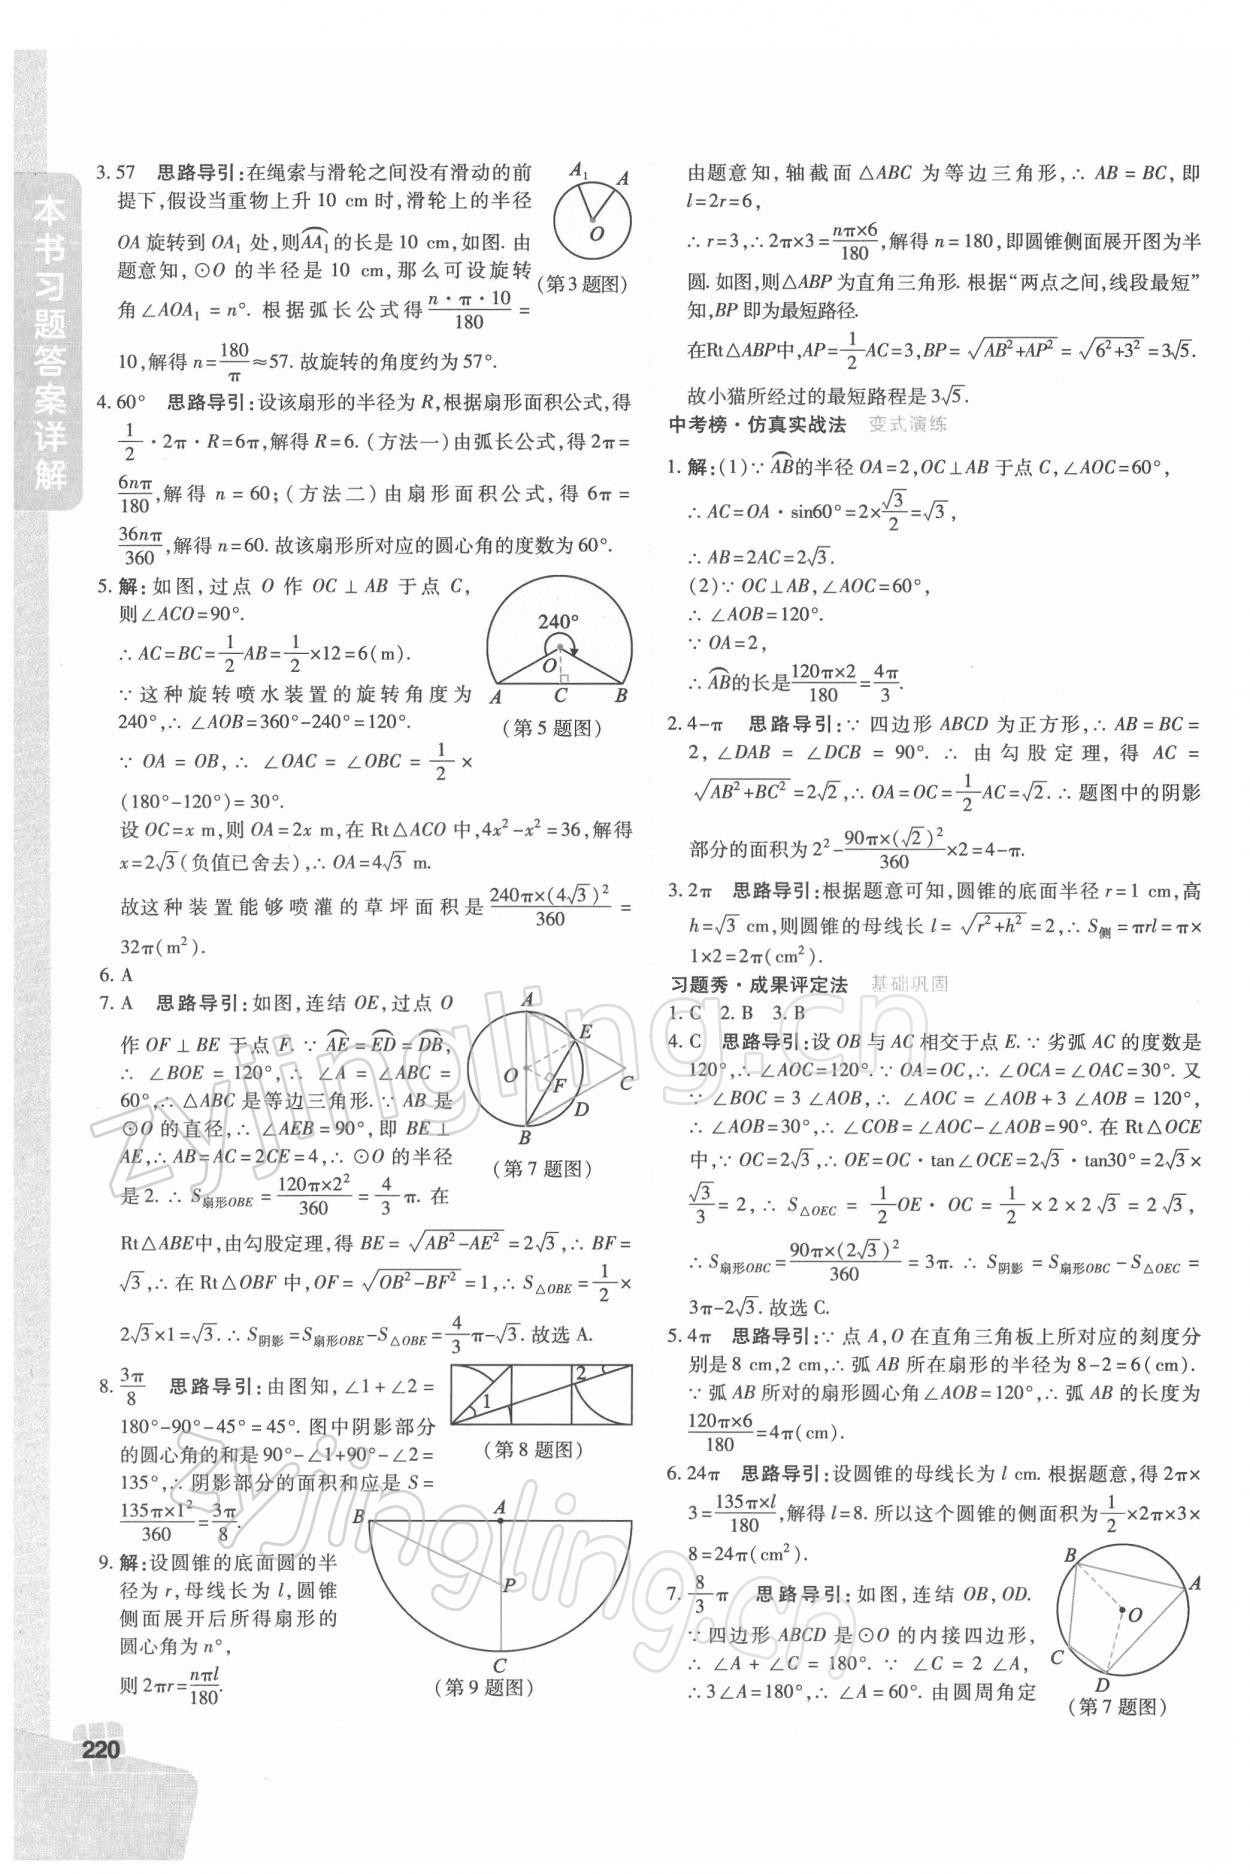 本书习题答案详解
3. 57 思路导引:在绳索与滑轮之间没有滑动的前
提下,假设当重物上升 10 cm 时,滑轮上的半径
OA 旋转到 OA₁ 处,则AA₁的长是 10 cm,如图. 由
题意知, ⊙O 的半径是 10 cm,那么可设旋转
角∠AOA₁ = n°. 根据弧长公式得 n·π·10/180 =
10,解得 n=180/π≈57. 故旋转的角度约为 57°.
A₁ A
O
(第3题图)
4. 60° 思路导引:设该扇形的半径为 R,根据扇形面积公式,得
1/2·2π·R=6π,解得 R=6. (方法一)由弧长公式,得 2π=
6nπ/180,解得 n = 60;(方法二)由扇形面积公式,得 6π =
36nπ/360,解得 n=60. 故该扇形所对应的圆心角的度数为 60°.
5. 解:如图,过点 O 作 OC ⊥ AB 于点 C,
则∠ACO=90°.
∴ AC=BC=1/2AB=1/2×12=6(m).
∵ 这种旋转喷水装置的旋转角度为
240°,∴ ∠AOB=360°-240°=120°.
∵ OA = OB,∴ ∠OAC = ∠OBC = 1/2 ×
(180°-120°)=30°.
240°
O
A C B
(第5题图)
设 OC=x m,则 OA=2x m,在 Rt△ACO 中,4x²-x²=36,解得
x=2√3(负值已舍去),∴ OA=4√3 m.
故这种装置能够喷灌的草坪面积是 240π×(4√3)²/360 =
32π(m²).
6. A
7. A 思路导引:如图,连结 OE,过点 O
作 OF⊥BE 于点 F. ∵ AE=ED=DB,
∴ ∠BOE = 120°,∴ ∠A = ∠ABC =
60°,∴ △ABC 是等边三角形. ∵ AB 是
⊙O 的直径,∴ ∠AEB=90°,即 BE⊥
AE,∴ AB=AC=2CE=4,∴ ⊙O 的半径
是 2. ∴ S扇形OBE = 120π×2²/360 = 4/3 π. 在
A
E
O
F
C
D
B
(第7题图)
Rt△ABE中,由勾股定理,得 BE= √AB²-AE² =2√3,∴ BF=
√3,∴ 在 Rt△OBF 中,OF=√OB²-BF² =1,∴ S△OBE = 1/2 ×
2√3×1=√3. ∴ S阴影=S扇形OBE-S△OBE=4/3π-√3. 故选 A.
8. 3π/8 思路导引:由图知,∠1+∠2=
180°-90°-45°=45°. 图中阴影部分
的圆心角的和是 90°-∠1+90°-∠2=
135°,∴ 阴影部分的面积和应是 S=
135π×1²/360=3π/8.
1 2
(第8题图)
9. 解:设圆锥的底面圆的半
径为 r,母线长为 l,圆锥
侧面展开后所得扇形的
圆心角为 n°,
则 2πr=nπl/180.
B A
P
C
(第9题图)
220
由题意知, 轴截面 △ABC 为等边三角形,∴ AB = BC, 即
l=2r=6,
∴ r=3,∴ 2π×3=nπ×6/180,解得 n=180,即圆锥侧面展开图为半
圆. 如图,则△ABP 为直角三角形. 根据“两点之间,线段最短”
知,BP 即为最短路径.
在Rt△ABP中,AP=1/2AC=3,BP=√AB²+AP² =√6²+3² =3√5.
故小猫所经过的最短路程是 3√5.
中考榜·仿真实战法 变式演练
1. 解:(1)∵ AB的半径 OA=2,OC⊥AB 于点 C,∠AOC=60°,
∴ AC=OA·sin60°=2×√3/2=√3,
∴ AB=2AC=2√3.
(2)∵ OC⊥AB,∠AOC=60°,
∴ ∠AOB=120°.
∵ OA=2,
∴ AB的长是120π×2/180=4π/3.
2. 4-π 思路导引:∵ 四边形 ABCD 为正方形,∴ AB=BC=
2, ∠DAB = ∠DCB = 90°. ∴ 由勾股定理, 得 AC =
√AB²+BC² =2√2,∴ OA=OC=1/2AC=√2. ∴ 题图中的阴影
部分的面积为 2²-90π×(√2)²/360×2=4-π.
3. 2π 思路导引:根据题意可知,圆锥的底面半径 r=1 cm,高
h=√3 cm,则圆锥的母线长 l= √r²+h² =2,∴ S侧=πrl=π×
1×2=2π(cm²).
习题秀·成果评定法 基础巩固
1. C 2. B 3. B
4. C 思路导引:设 OB 与 AC 相交于点 E. ∵ 劣弧 AC 的度数是
120°,∴ ∠AOC=120°. ∵ OA=OC,∴ ∠OCA=∠OAC=30°. 又
∵ ∠BOC = 3 ∠AOB,∴ ∠AOC = ∠AOB+3 ∠AOB = 120°,
∴ ∠AOB=30°,∴ ∠COB=∠AOC-∠AOB=90°. 在 Rt△OCE
中,∵ OC=2√3,∴ OE=OC·tan∠OCE=2√3·tan30°=2√3×
√3/3 = 2,∴ S△OEC = 1/2 OE· OC = 1/2 × 2 × 2√3 = 2√3,
∴ S扇形OBC=90π×(2√3)²/360 = 3π. ∴ S阴影 = S扇形OBC - S△OEC =
3π-2√3. 故选 C.
5. 4π 思路导引:∵ 点 A,O 在直角三角板上所对应的刻度分
别是 8 cm,2 cm,∴ 弧 AB 所在扇形的半径为 8-2=6(cm).
∵ 弧 AB 所对的扇形圆心角∠AOB=120°,∴ 弧 AB 的长度为
120π×6/180=4π(cm).
6. 24π 思路导引:设圆锥的母线长为 l cm. 根据题意,得 2π×
3=135π×l/180,解得 l=8. 所以这个圆锥的侧面积为1/2×2π×3×
8=24π(cm²).
7. 8/3π 思路导引:如图,连结 OB,OD.
∵ 四边形 ABCD 是⊙O 的内接四边形,
∴ ∠A + ∠C = 180°. ∵ ∠C = 2 ∠A,
∴ 3∠A=180°,∴ ∠A=60°. 由圆周角定
B
A
O
C
D
(第7题图)
zyjingling.cn
zyjingling.cn